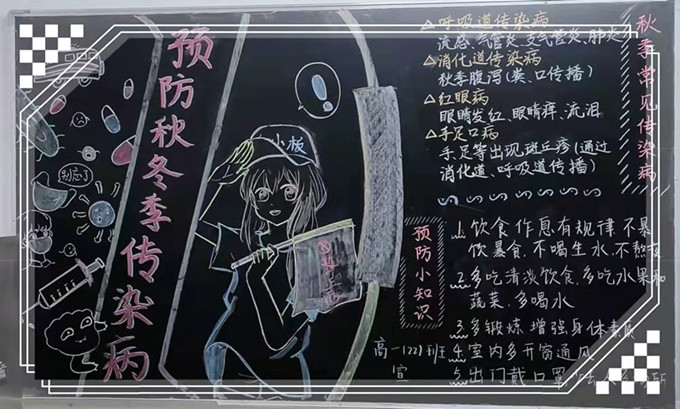 预防秋冬季传染病
别忘了
小板
秋季常见传染病
△呼吸道传染病
流感、气管炎、支气管炎、肺炎
△消化道传染病
秋季腹泻(粪、口传播)
△红眼病
眼睛发红、眼睛痒、流泪
△手足口病
手足等出现斑丘疹(通过
消化道、呼吸道传播)
预防小知识
1.饮食作息有规律 不暴
饮暴食、不喝生水、不熬夜
2.多吃清淡饮食,多吃水果和
蔬菜、多喝水
3.多锻炼 增强身体素质
4.室内多开窗通风
5.出门戴口罩
高一(22)班
宣